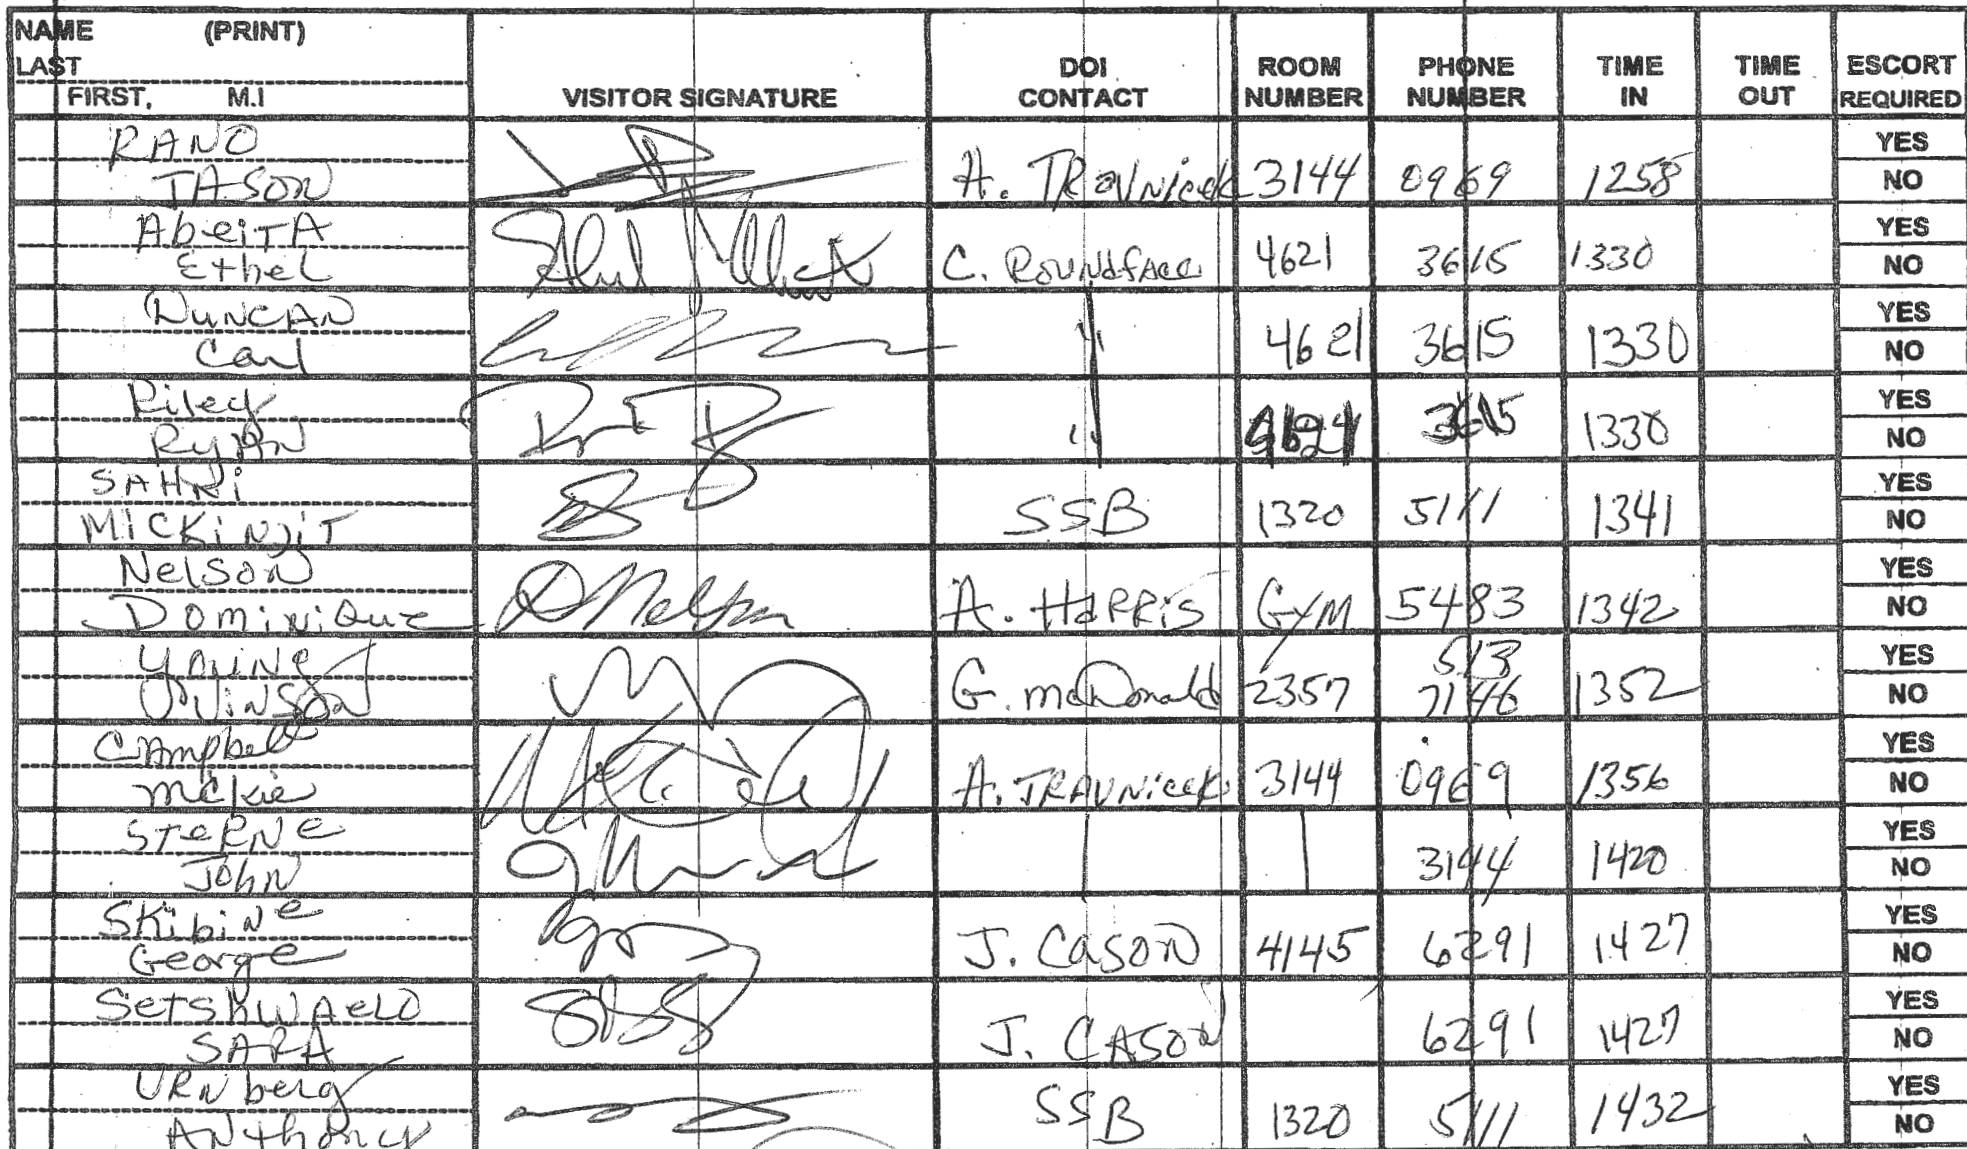 NAME (PRINT)
LAST
FIRST, M.I
VISITOR SIGNATURE
DOI CONTACT
ROOM NUMBER
PHONE NUMBER
TIME IN
TIME OUT
ESCORT REQUIRED
RANO
JASON
A. TRAVNICEK 3144 0969 1258
YES
NO
AbeiTA
Ethel
C. ROUNDfACE 4621 3615 1330
YES
NO
DUNCAN
Carl
" 4621 3615 1330
YES
NO
Riley
RYAN
" 4621 3615 1330
YES
NO
SAHNI
MICKINJIT
SSB 1320 5111 1341
YES
NO
NelsoN
DOMINIQUE
A. HARRIS GYM 5483 1342
YES
NO
YOUNG
VINSON
G. McDonald 2357 513 7146 1352
YES
NO
CAmpbell
mckie
A. TRAVNICEK 3144 0969 1356
YES
NO
STeRNe
JOHN
3144 1420
YES
NO
SKibiNe
George
J. CASON 4145 6291 1427
YES
NO
SARA
J. CASON 6291 1427
YES
NO
URNberg
ANthony
SSB 1320 5111 1432
YES
NO